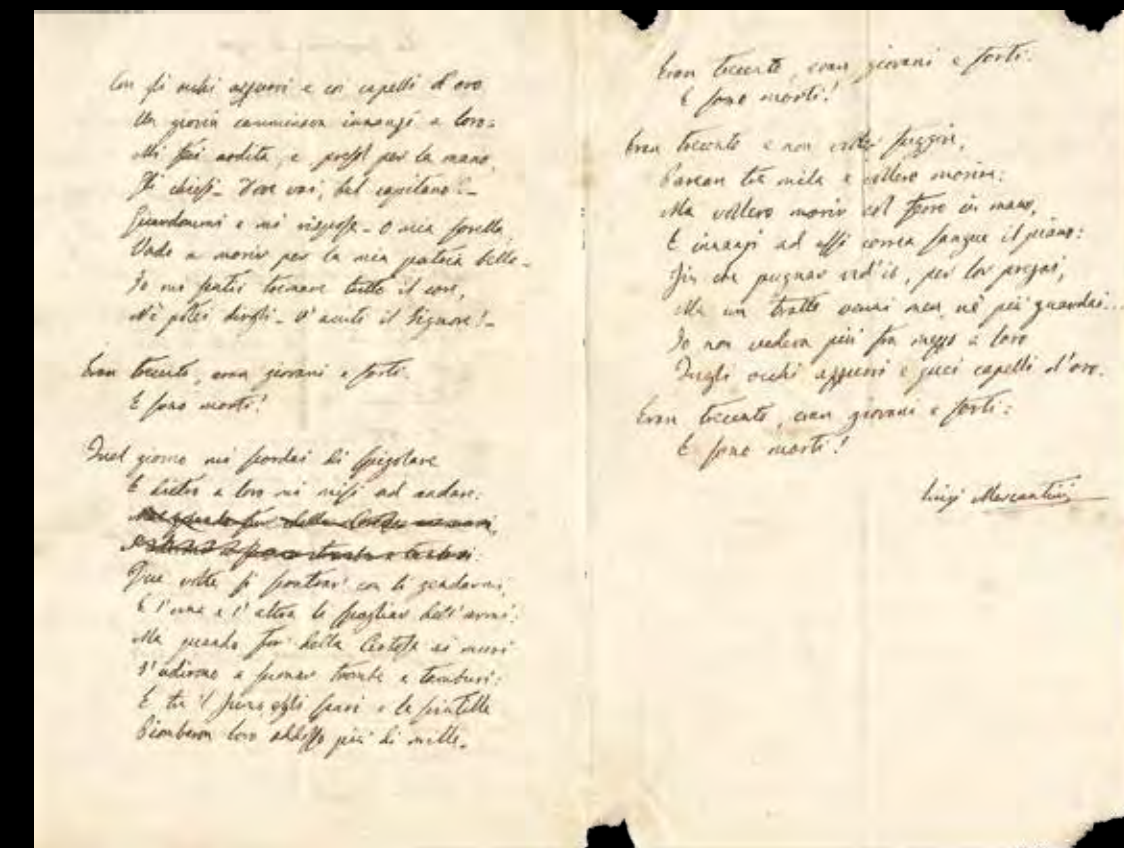 Con gli occhi azzurri e coi capelli d'oro
Un giovin camminava innanzi a loro:
Mi feci ardita, e, presol per la mano,
Gli chiesi - Dove vai, bel capitano? -
Guardommi e mi rispose - O mia sorella,
Vado a morir per la mia patria bella -
Io mi sentii tremare tutto il core,
Nè potei dirgli - V'aiuti il Signore! -
Eran trecento, eran giovani e forti:
E sono morti!
Quel giorno mi scordai di spigolare
E dietro a loro mi misi ad andare:
Ma quando fur della Certosa ai muri,
S'udirono a suonar trombe e tamburi:
Due volte si scontrar con li gendarmi,
E l'una e l'altra li spogliar dell'armi:
Ma quando fur della Certosa ai muri
S'udirono a suonar trombe e tamburi:
E tra 'l fumo e gli spari e le scintille
Piombaron loro addosso più di mille.
Eran trecento, eran giovani e forti:
E sono morti!
Eran trecento e non voller fuggire,
Parean tre mila e vollero morire:
Ma vollero morir col ferro in mano,
E innanzi ad essi correa sangue il piano:
Fin che pugnar vid'io, per lor pregai,
Ma un tratto venni men, nè più guardai...
Io non vedeva più fra mezzo a loro
Quegli occhi azzurri e quei capelli d'oro.
Eran trecento, eran giovani e forti:
E sono morti!
Luigi Mercantini